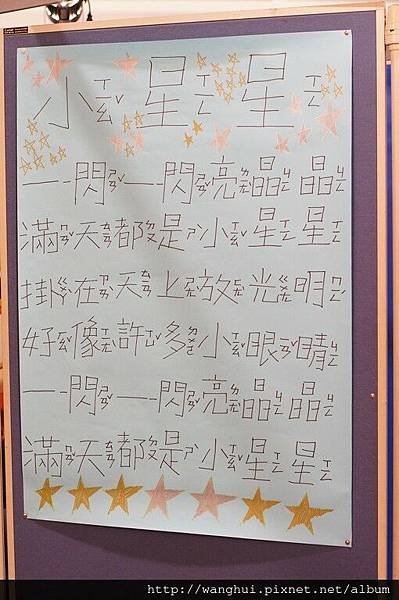 小星星
一閃一閃亮晶晶
滿天都是小星星
掛在天上放光明
好像許多小眼睛
一閃一閃亮晶晶
滿天都是小星星
http://wanghui.pixnet.net/album